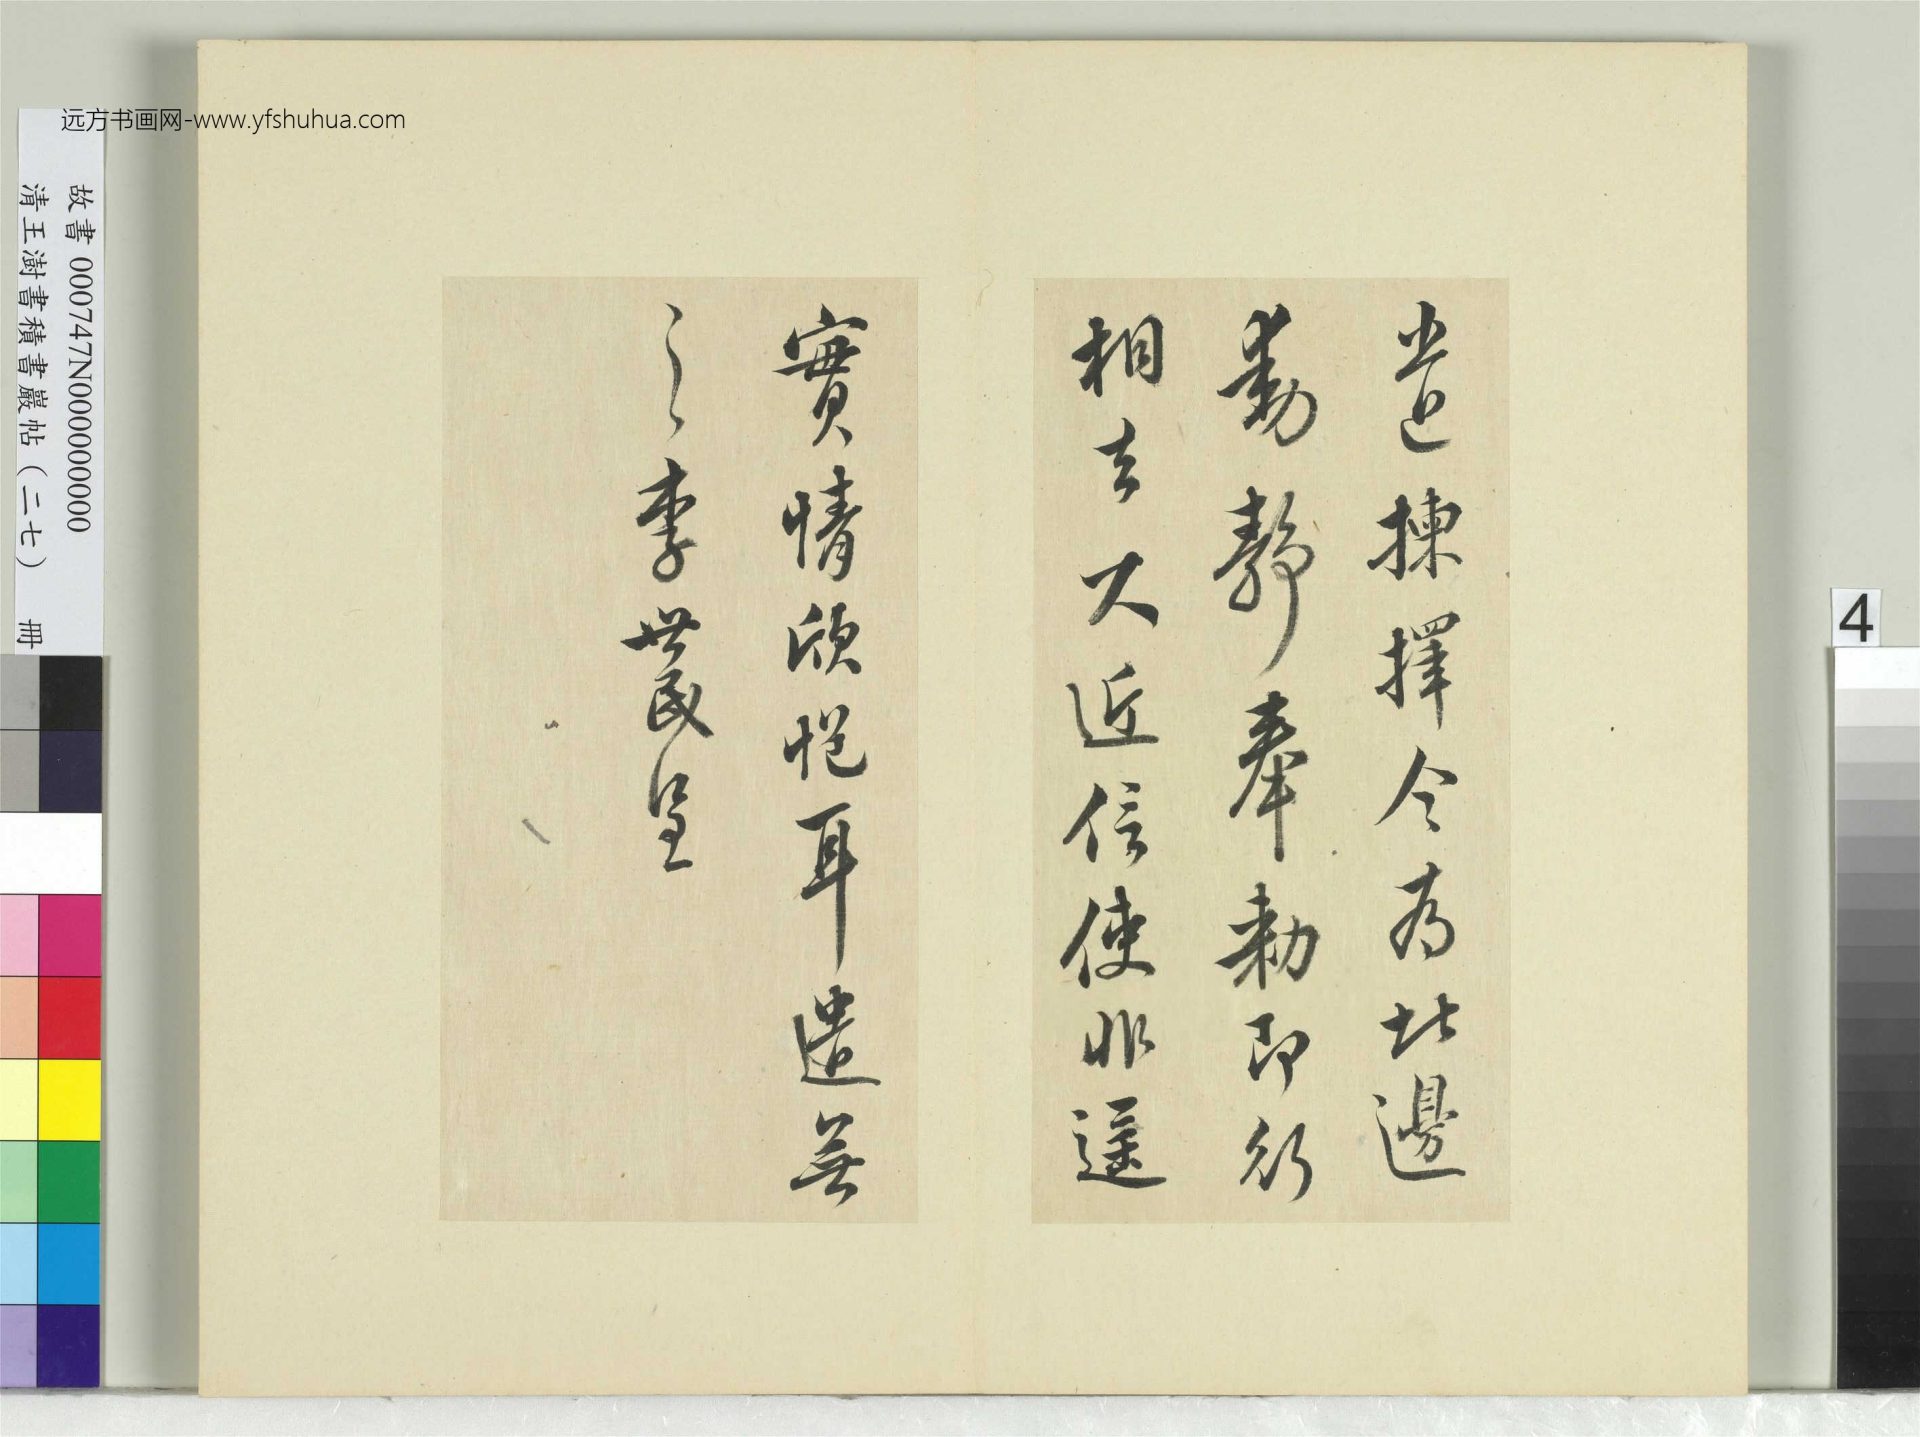 远方书画网-www.yfshuhua.com
故書 000747N000000000
清王澍書積書巖帖（二七） 冊
4
揀擇今為北邊
動靜奉勅即行
相去又近信使非遥
實情欣悒耳遣無
之李世民呈